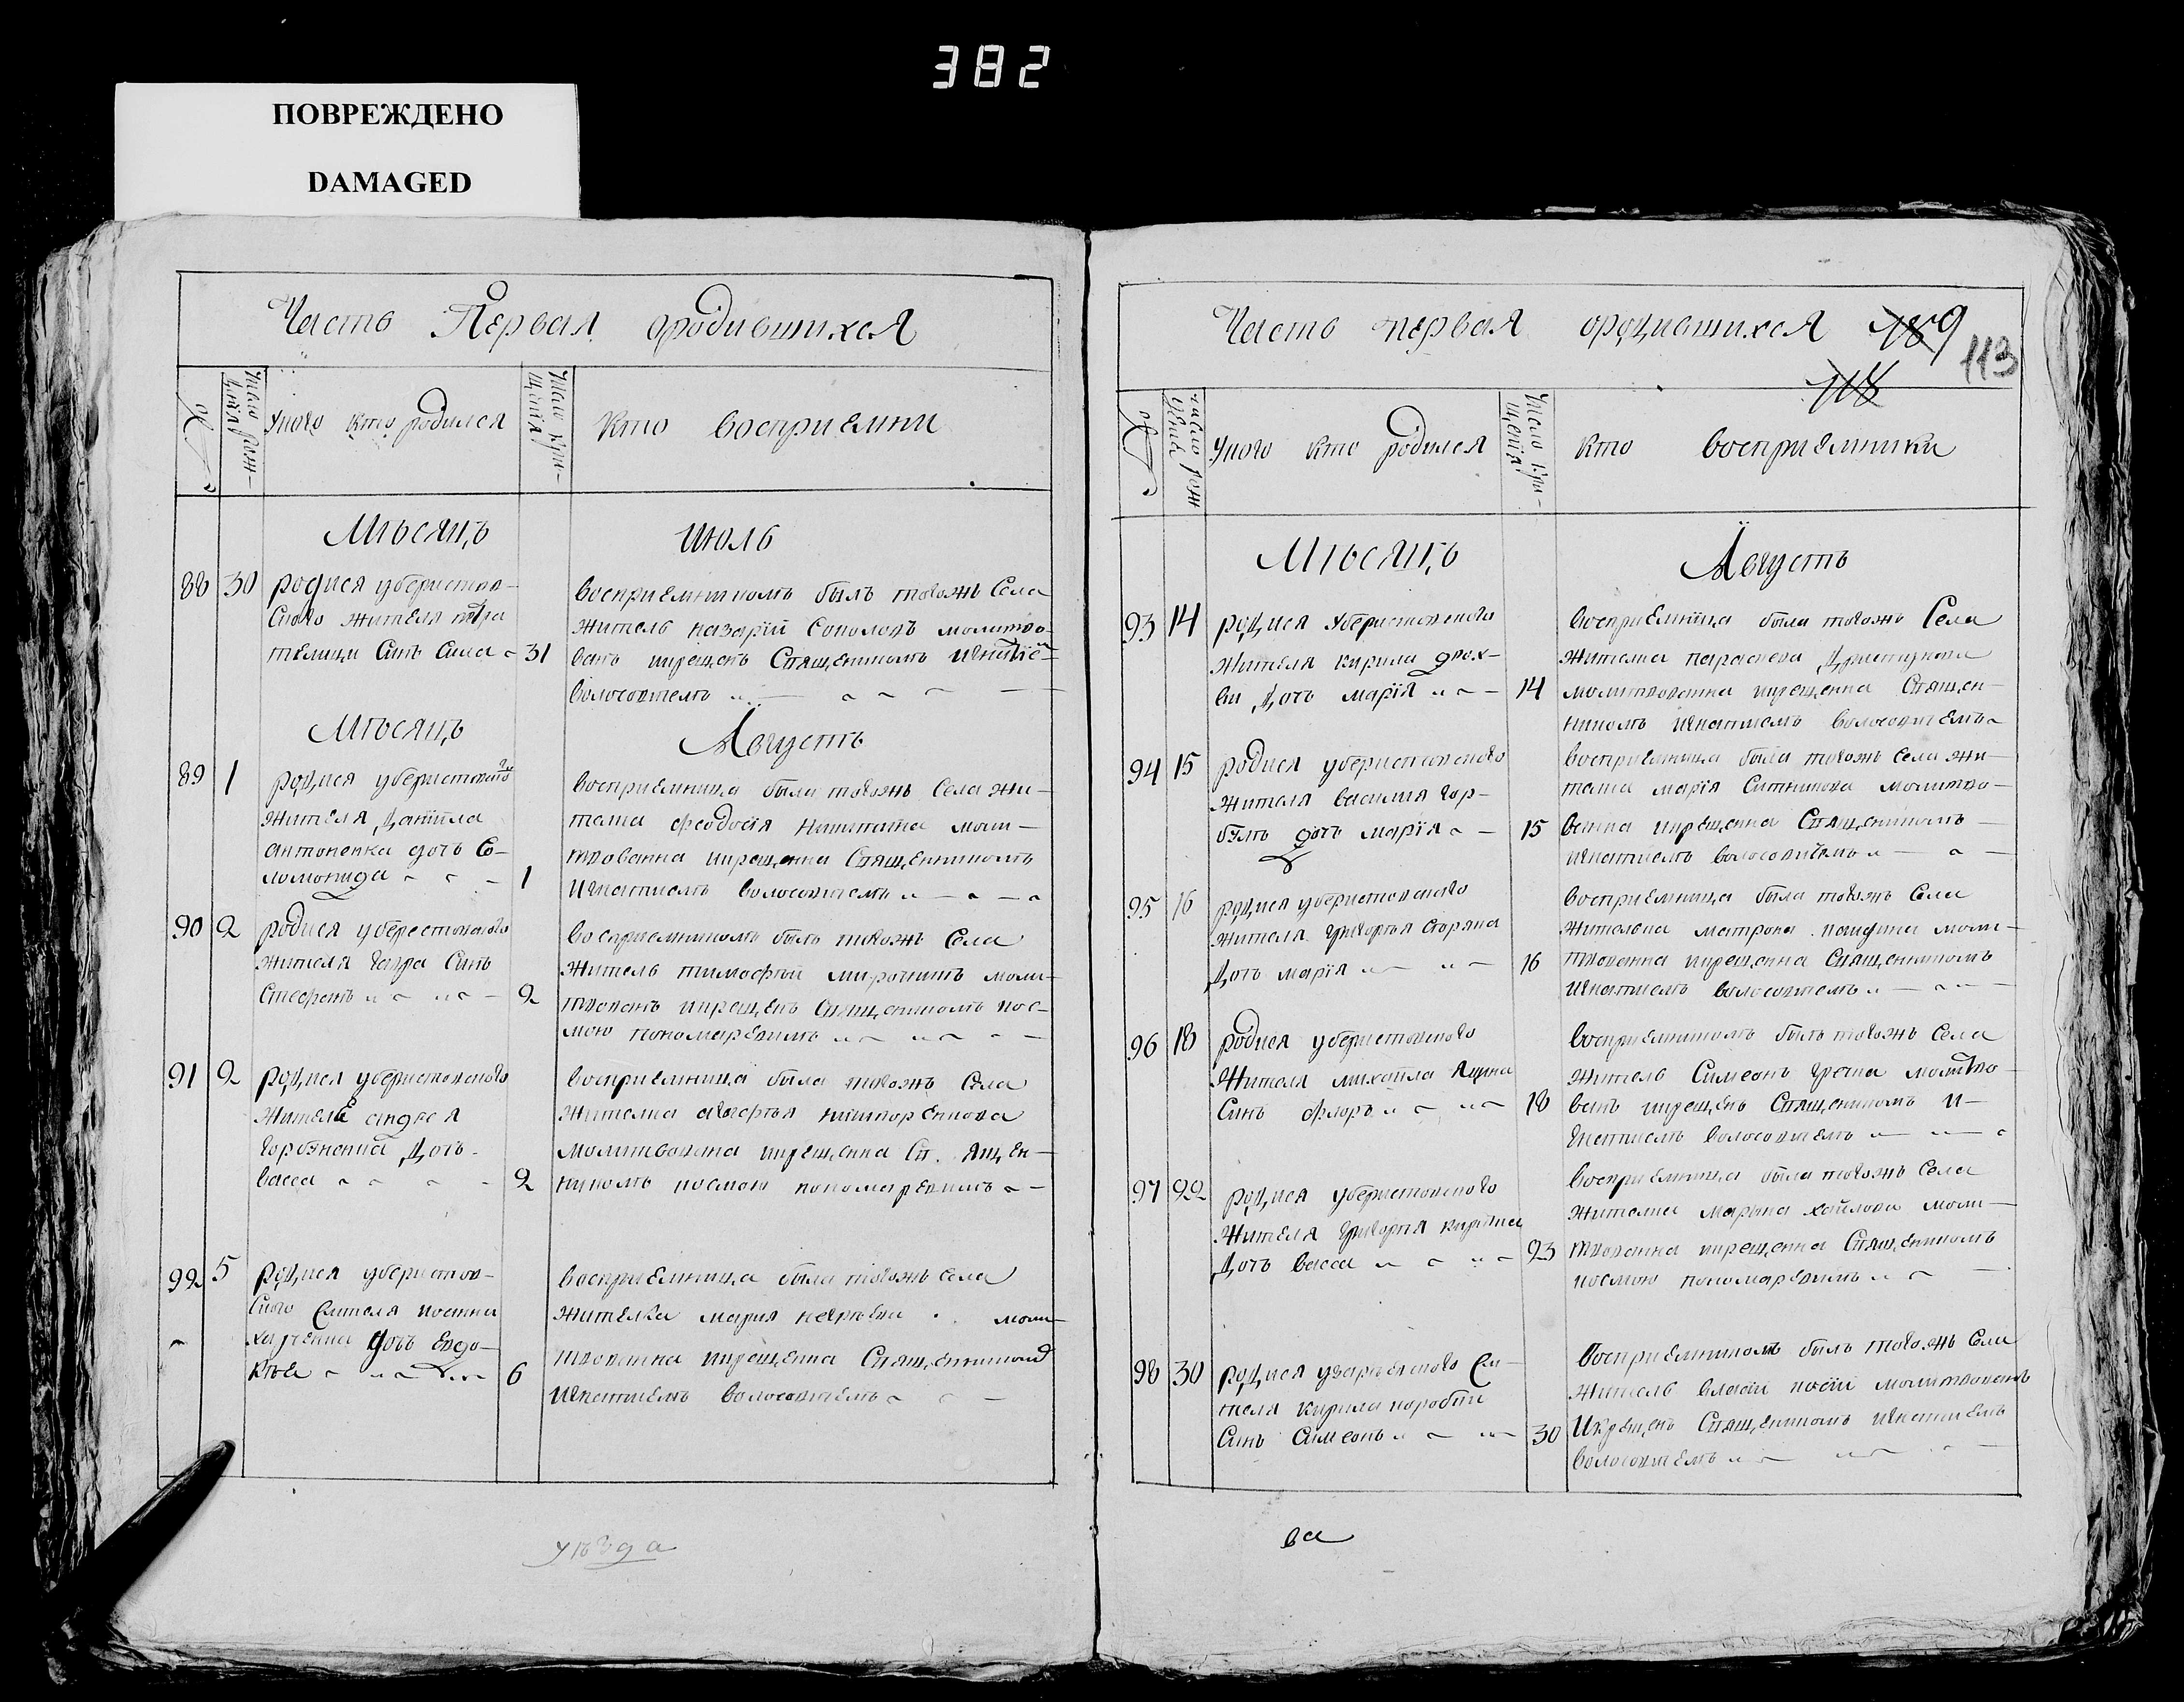 382
ПОВРЕЖДЕНО
DAMAGED
Часть Первая ородившихся
№
Число рож-
денiя
У кого кто родился
Число кре-
щенiя
Кто восприемни
Мѣсяцъ Июль
88 30 родися уберистов-
ского жителя петра
Синъ Сила 31
восприемникомъ былъ тогожъ Села
житель назарiй Соколовъ молитво-
ванъ икрещенъ Священникомъ Игнатiе-
Волосовичемъ
Мѣсяцъ Августъ
89 1 родися уберистовского
жителя данiила
антоненка дочь Со-
ломонида 1
восприемница была тогожъ Села жи-
телка феодосiя молит-
вованна икрещенна Священникомъ
Игнатиемъ Волосовичемъ
90 2 родися уберестовского
жителя Синъ
Стефанъ 2
восприемникомъ былъ тогожъ Села
житель тимофей миронит моли-
твованъ икрещенъ Священникомъ кос-
мою пономаревимъ
91 2 родися уберистовского
жителЕ андрея
дочь
васса 2
восприемница была тогожъ Села
жителка агафья
молитвованна икрещенна Священ-
никомъ космою пономаревимъ
92 5 родися уберистов-
ского Жителя
дочь Евдо-
кѣя 6
восприемница была тогожъ села
жителка мария моли-
твованна икрещенна Священникомъ
Игнатиемъ Волосовичемъ
уѣзда
Часть первая ородившихся 189
118
113
№
число рож
денiя
У кого кто родился
Число кре-
щенiя
кто восприемники
Мѣсяцъ Августъ
93 14 родися Уберистовского
жителя кирила
дочь марiя 14
восприемница была тогожъ Села
жителка параскева
молитвованна икрещенна Священ-
никомъ Игнатиемъ Волосовичемъ
94 15 родися уберистовского
жителя василия гор-
дочь марiя 15
восприемница была тогожъ села жи-
телка марiя Ситникова молитво-
ванна икрещенна Священникомъ
Игнатиемъ Волосовичемъ
95 16 родися уберистовского
жителя григорья
дочь марiя 16
восприемница была тогожъ Села
жителка матрона моли-
твованна икрещенна Священникомъ
Игнатиемъ Волосовичемъ
96 18 родися уберистовского
жителя михаила яцина
Синъ флоръ 18
восприемникомъ былъ тогожъ Села
житель Симеонъ молитво-
ванъ икрещенъ Священникомъ И-
гнатиемъ Волосовичемъ
97 22 родися уберистовского
жителя григория
дочь васса 23
восприемница была тогожъ Села
жителка марина моли-
твованна икрещенна Священникомъ
космою пономаревимъ
98 30 родися
кирила
Синъ Симеонъ 30
Восприемникомъ былъ тогожъ Села
житель молитвованъ
Икрещенъ Священникомъ Игнатиемъ
Волосовичемъ
ва